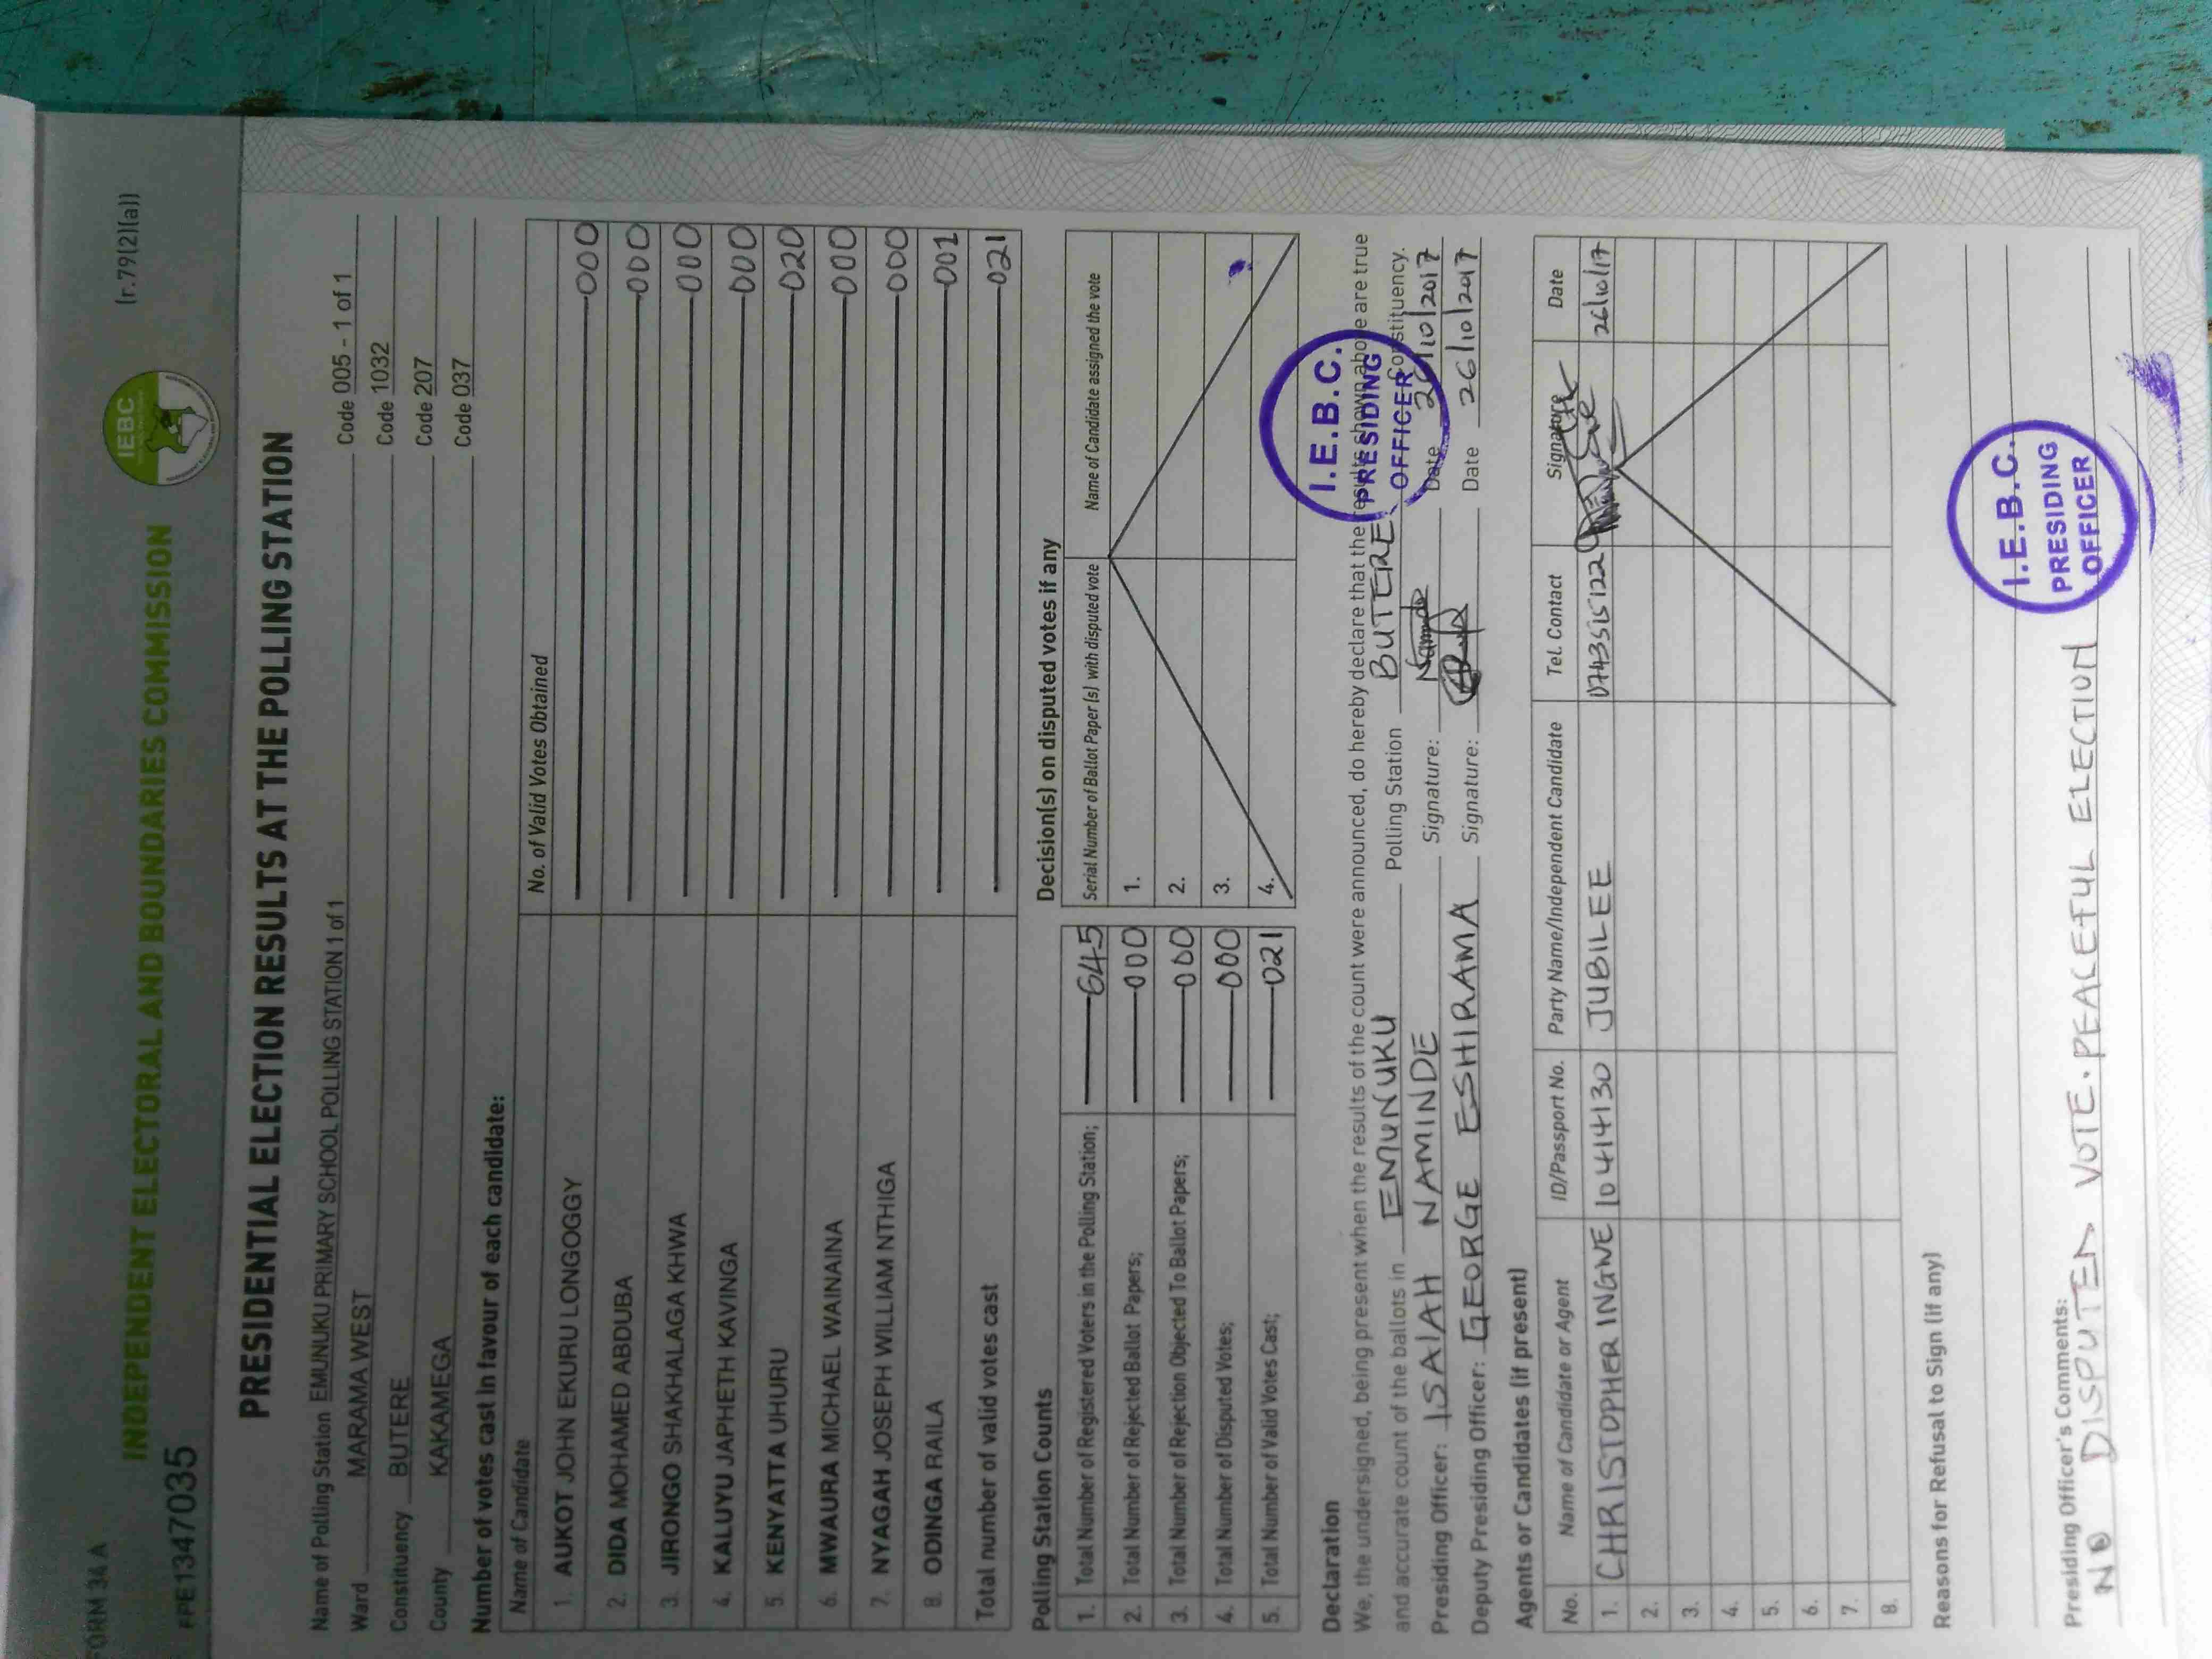 FORM 34 A
(r.79(2)(a))
INDEPENDENT ELECTORAL AND BOUNDARIES COMMISSION
IEBC
FPE1347035
PRESIDENTIAL ELECTION RESULTS AT THE POLLING STATION
Name of Polling Station EMUNUKU PRIMARY SCHOOL POLLING STATION 1 of 1 Code 005 - 1 of 1
Ward MARAMA WEST Code 1032
Constituency BUTERE Code 207
County KAKAMEGA Code 037
Number of votes cast in favour of each candidate:
Name of Candidate No. of Valid Votes Obtained
1. AUKOT JOHN EKURU LONGOGGY 000
2. DIDA MOHAMED ABDUBA 000
3. JIRONGO SHAKHALAGA KHWA 000
4. KALUYU JAPHETH KAVINGA 000
5. KENYATTA UHURU 020
6. MWAURA MICHAEL WAINAINA 000
7. NYAGAH JOSEPH WILLIAM NTHIGA 000
8. ODINGA RAILA 001
Total number of valid votes cast 021
Polling Station Counts
1. Total Number of Registered Voters in the Polling Station; 645
2. Total Number of Rejected Ballot Papers; 000
3. Total Number of Rejection Objected To Ballot Papers; 000
4. Total Number of Disputed Votes; 000
5. Total Number of Valid Votes Cast; 021
Decision(s) on disputed votes if any
Serial Number of Ballot Paper (s) with disputed vote Name of Candidate assigned the vote
1.
2.
3.
4.
Declaration
We, the undersigned, being present when the results of the count were announced, do hereby declare that the results shown above are true
and accurate count of the ballots in EMUNUKU Polling Station BUTERE Constituency.
Presiding Officer: ISAIAH NAMINDE Signature: Date 26/10/2017
Deputy Presiding Officer: GEORGE ESHIRAMA Signature: Date 26/10/2017
I.E.B.C.
PRESIDING
OFFICER
Agents or Candidates (if present)
No. Name of Candidate or Agent ID/Passport No. Party Name/Independent Candidate Tel. Contact Signature Date
1. CHRISTOPHER INGWE 10414130 JUBILEE 0743515122 26/10/17
2.
3.
4.
5.
6.
7.
8.
Reasons for Refusal to Sign (if any)
Presiding Officer's Comments:
NO DISPUTEN VOTE. PEACEFUL ELECTION
I.E.B.C.
PRESIDING
OFFICER